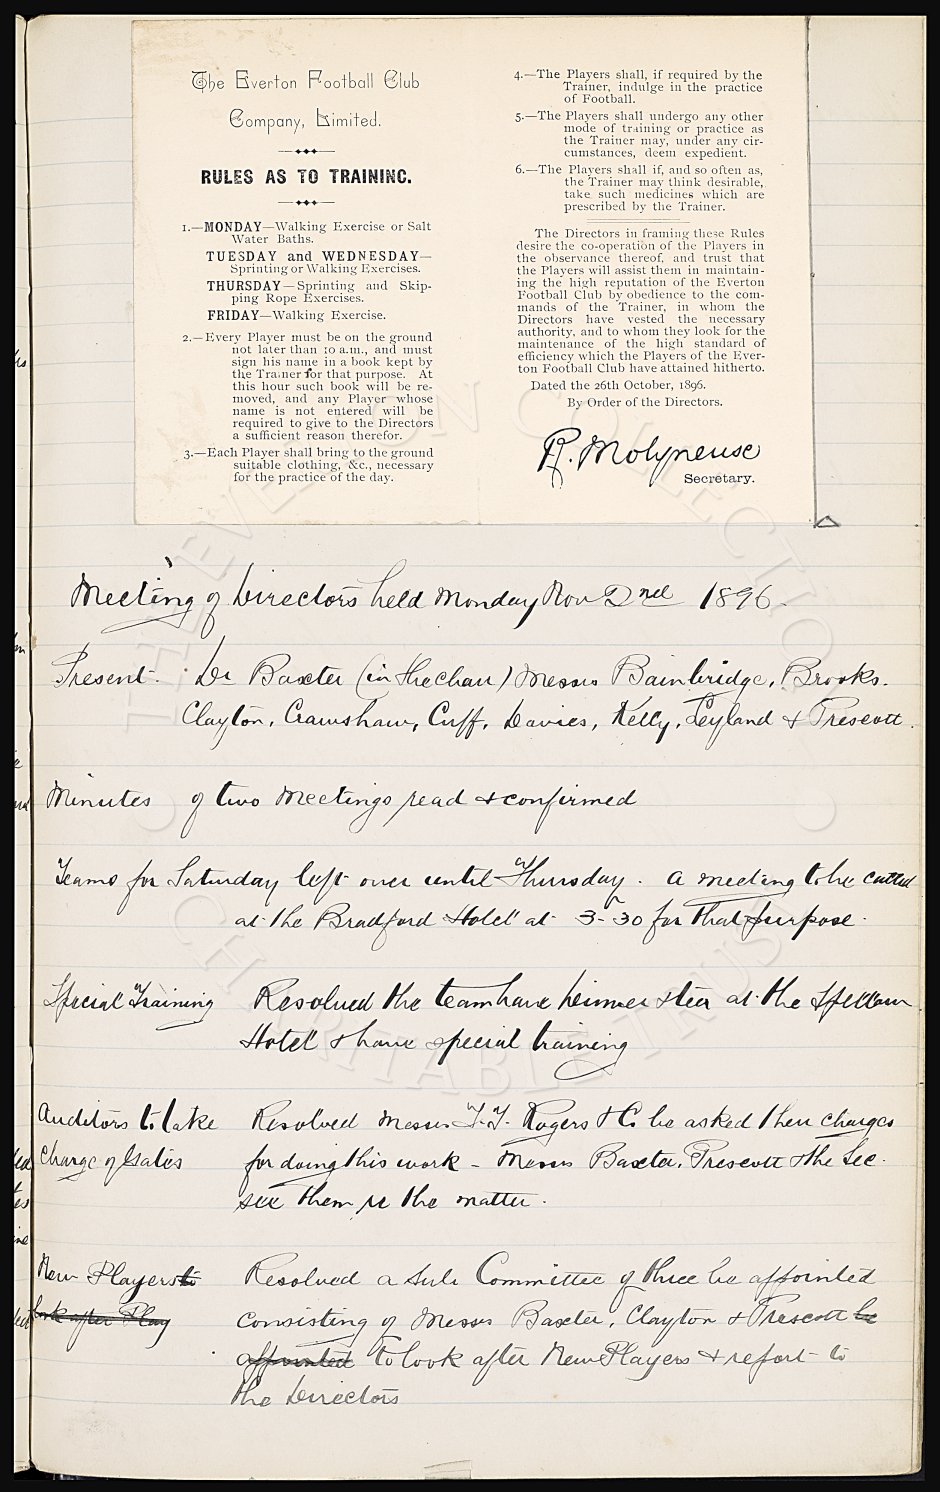 The Everton Football Club
Company, Limited.
RULES AS TO TRAINING.
1.—MONDAY—Walking Exercise or Salt
Water Baths.
TUESDAY and WEDNESDAY—
Sprinting or Walking Exercises.
THURSDAY—Sprinting and Skip-
ping Rope Exercises.
FRIDAY—Walking Exercise.
2.—Every Player must be on the ground
not later than 10 a.m., and must
sign his name in a book kept by
the Trainer for that purpose. At
this hour such book will be re-
moved, and any Player whose
name is not entered will be
required to give to the Directors
a sufficient reason therefor.
3.—Each Player shall bring to the ground
suitable clothing, &c., necessary
for the practice of the day.
4.—The Players shall, if required by the
Trainer, indulge in the practice
of Football.
5.—The Players shall undergo any other
mode of training or practice as
the Trainer may, under any cir-
cumstances, deem expedient.
6.—The Players shall if, and so often as,
the Trainer may think desirable,
take such medicines which are
prescribed by the Trainer.
The Directors in framing these Rules
desire the co-operation of the Players in
the observance thereof, and trust that
the Players will assist them in maintain-
ing the high reputation of the Everton
Football Club by obedience to the com-
mands of the Trainer, in whom the
Directors have vested the necessary
authority, and to whom they look for the
maintenance of the high standard of
efficiency which the Players of the Ever-
ton Football Club have attained hitherto.
Dated the 26th October, 1896.
By Order of the Directors.
R. Molyneux
Secretary.
Meeting of Directors held Monday Nov 2nd 1896.
Present. Dr Baxter (in the chair) Messrs Bainbridge, Brooks.
Clayton, Crawshaw, Cuff, Davies, Kelly, Leyland & Prescott.
Minutes of two Meetings read & confirmed
Teams for Saturday left over until Thursday. A meeting to be called
at the Bradford Hotel at 3-30 for that purpose.
Special Training Resolved the team have dinner & tea at the Spellow
Hotel & have special training
Auditors to take Resolved Messrs T.Y. Rogers & Co be asked their charges
charge of Gates for doing this work - Messrs Baxter, Prescott & the Sec.
see them re the matter.
New Players to Resolved a Sub Committee of three be appointed
look after Play consisting of Messrs Baxter, Clayton & Prescott be
appointed to look after New Players & report to
the Directors
THE EVERTON COLLECTION
CHARITABLE TRUST